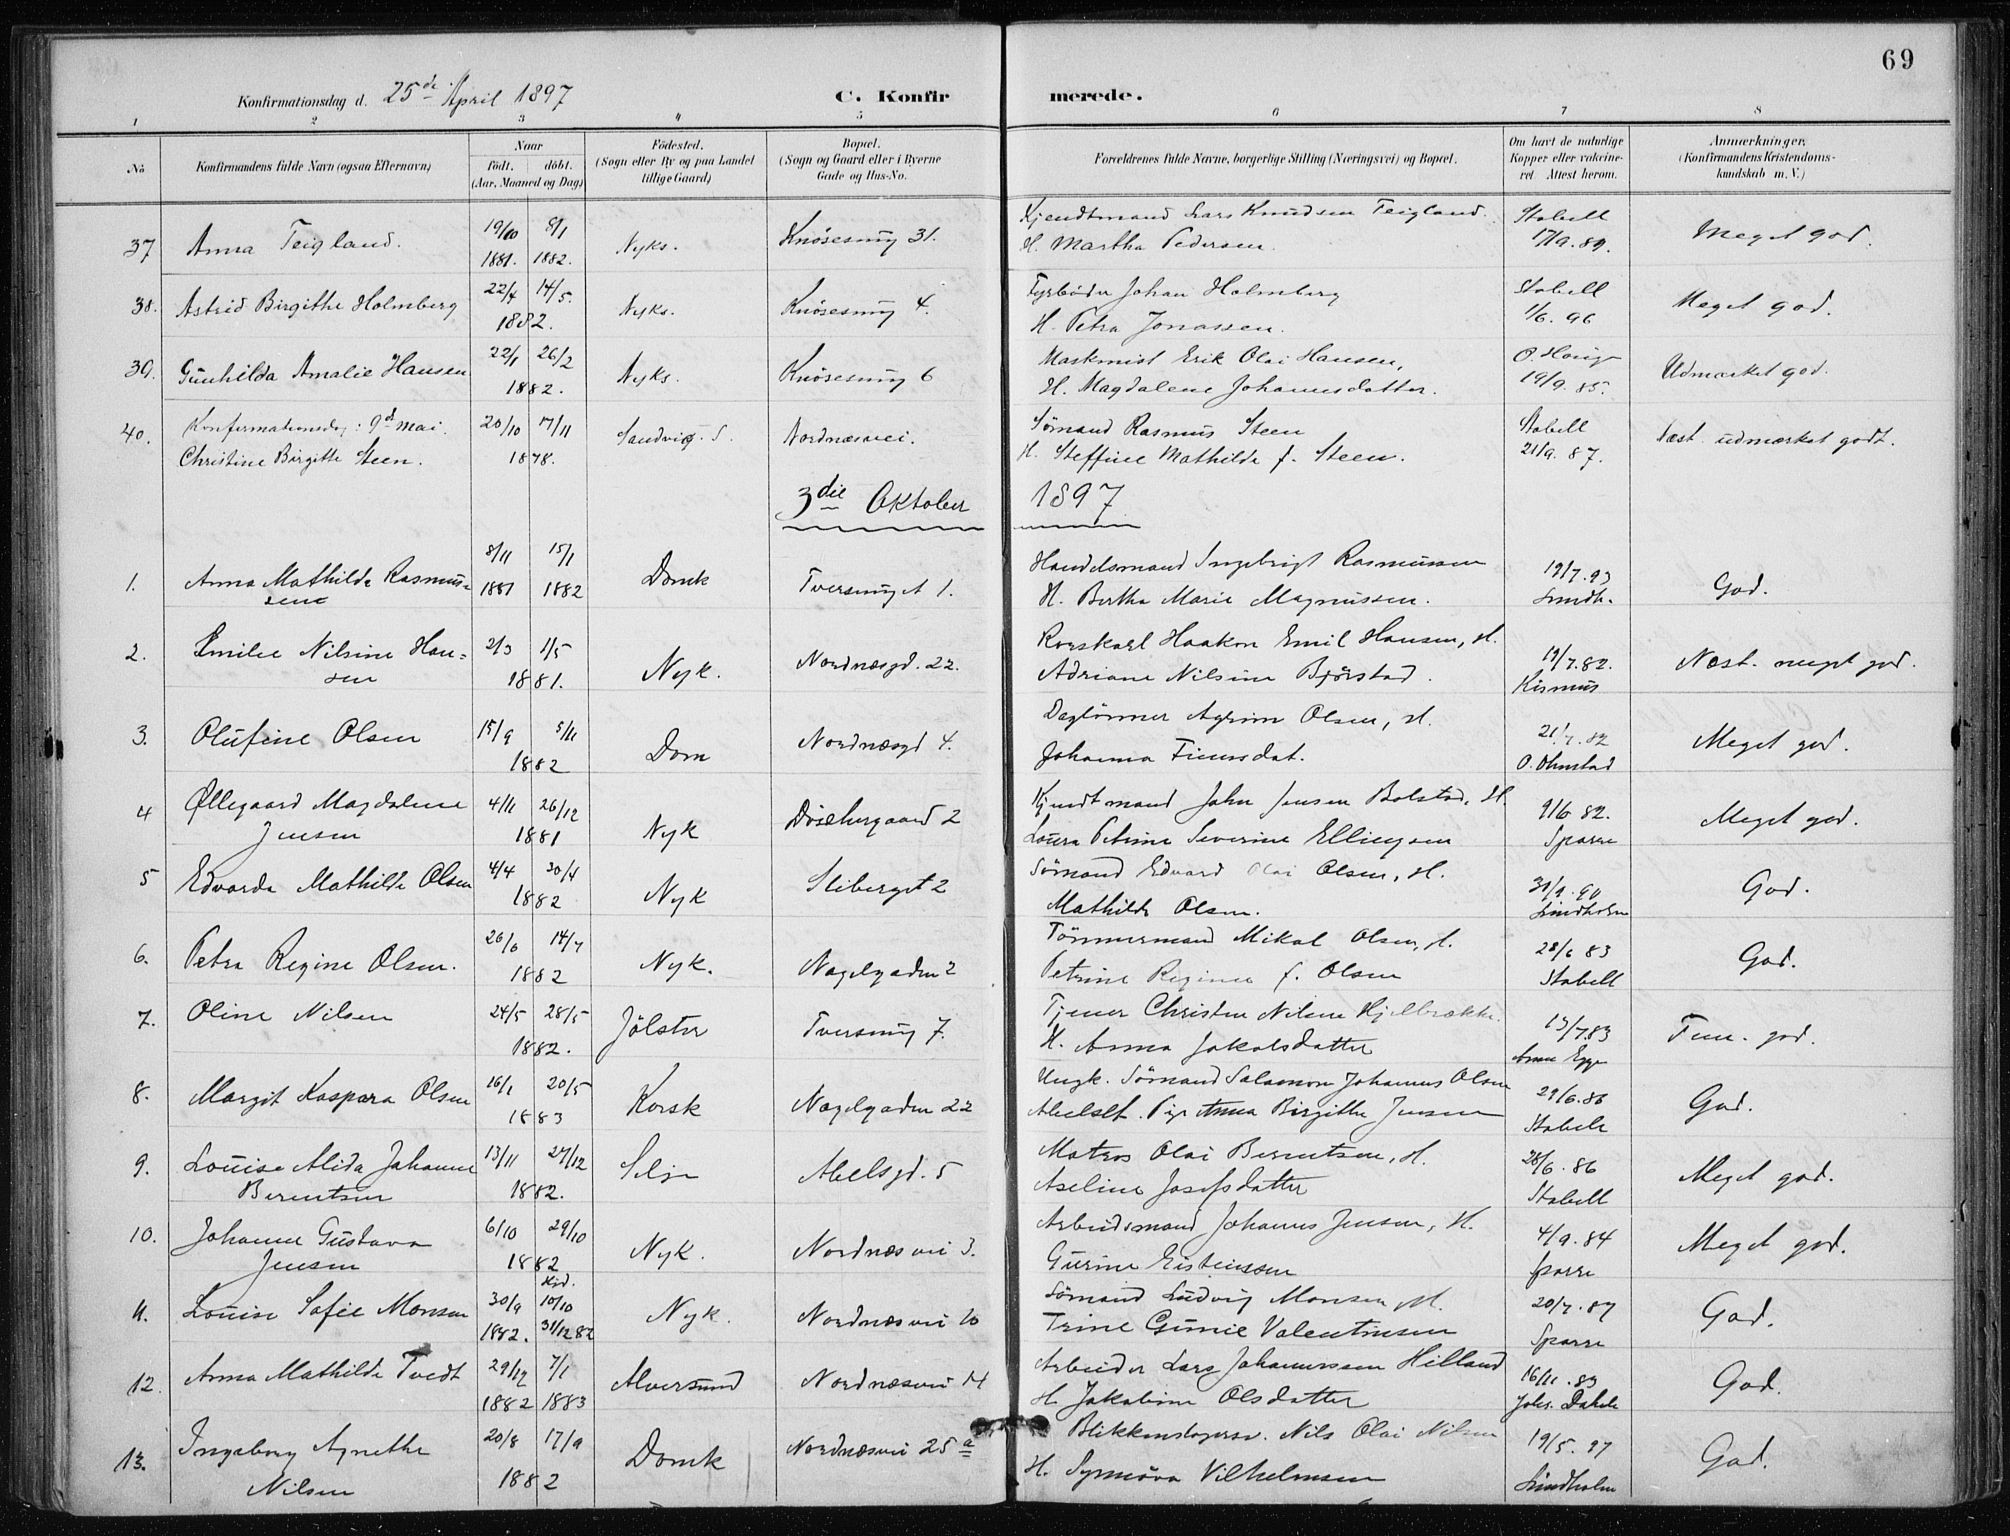 69
Konfirmationsdag d. 25de April 1897
C. Konfirmerede.
1 2 3 4 5 6 7 8
No
Konfirmandens fulde Navn (ogsaa Efternavn)
Naar
født. døbt.
(Aar, Maaned og Dag)
Fødested.
(Sogn eller By og paa Landet
tillige Gaard)
Bopæl.
(Sogn og Gaard eller i Byerne
Gade og Hus-No.
Forældrenes fulde Navne, borgerlige Stilling (Næringsvei) og Bopæl.
Om havt de naturlige
Kopper eller vakcine-
ret Attest herom.
Anmærkninger,
(Konfirmandens Kristendoms-
kundskab m. V.)
37 Anna Teigland. 19/10 1881. 8/1 1882. Nyks. Knøsesmug 31. Kjendtmand Lars Knudsen Teigland.
H. Martha Pedersen. Stabell 17/9. 89. Meget god.
38. Astrid Birgithe Holmberg 22/4 14/5. 1882. Nyks. Knøsesmug 4. Fyrbøder Johan Holmberg
H. Petra Jonassen. Stabell 1/6. 96 Meget god.
39. Gunhilda Amalie Hansen 22/1 26/2 1882. Nyks. Knøsesmug 6 Maskinist Erik Olai Hansen,
H. Magdalene Johannesdatter. 19/9. 85. Udmærket god.
40. Konfirmationsdag: 9d mai
Christine Birgitte Steen. 20/10 17/11 1878. Sandvig. S. Nordnæsvei. Sømand Rasmus Steen
H. Steffine Mathilde f. Steen. Stabell 21/9. 87. Næst udmærket godt.
3die Oktober 1897
1. Anna Mathilde Rasmus=
sene 8/11 1881 15/1 1882 Domk Tversmuget 1. Handelsmand Ingebrigt Rasmussen
H. Bertha Marie Magnussen. 19/7. 93 Lindh. God.
2. Emilie Nilsine Han=
sen 2/3 1/5 1881. Nyk. Nordnæsgd. 22. Rorskarl Haakon Emil Hansen, H.
Adriane Nilsine Bjørstad. 19/7. 82. Næst. meget god.
3. Olufine Olsen 15/9 5/11 1882 Dom Nordnæsgd 4. Daglønner Olsen, H.
Johanna 21/7. 82 O. Olmstad Meget god.
4 Øllegaard Magdalene
Jensen 4/11 26/12 1881 Nyk 2 Kjendtmand John Jensen Bolstad, H.
Laura Petrine Severine Ellingsen 9/6 82. Sparre Meget god.
5 Edvarda Mathilde Olsen 4/4 30/4 1882 Nyk Sliberget 2 Sømand Edvard Olai Olsen, H.
Mathilde Olsen. Lindholm God.
6. Petra Regine Olsen. 26/6 14/7 1882 Nyk. Nagelgaden 2 Tømmermand Mikal Olsen, H.
Petrine Regine f. Olsen 28/6 83 Stabell God.
7. Oline Nilsen 24/5 28/5 1882. Jølster Tversmug 7. Tjener Christen Nilsen Hjelbrække.
H. Anna Jakobsdatter 13/7.83 Tem. god.
8. Margit Kaspara Olsen 16/1 20/5 1883 Korsk Nagelgaden 22 Ungk. Sømand Salamon Johannes Olsen
Pige Anna Birgithe Jensen 29/6.86 Stabell God.
9. Louise Alida Johanne
Berentsen 13/11 27/12 1882. Selje Abelsgd. 5 Matros Olai Berentsen, H.
Aseline Josefsdatter 28/6. 86 Stabell Meget god.
10. Johanne Gustava
Jensen 6/10 29/10 1882 Nyk. Nordnæsvei 3. Arbeidsmand Johannes Jensen, H.
Gurine Eistenssen 4/9. 84 Sparre Meget god.
11. Louise Sofie Monsen 30/9 1882. Hjd. 10/10 31/12 82 Nyk. Nordnæsvei 10 Sømand Ludvig Monsen, H.
Trine Gunie Valentinsen 20/7. 87 Sparre God.
12. Anna Mathilde Tvedt 29/12 1882 7/1 1883 Alversund Nordnæsvei 14 Arbeider Lars Johannessen Hilland
H. Jakobine Olsdatter 16/11. 83 God.
13. Ingeborg Agnethe
Nilsen 20/8 17/9 1882 Domk Nordnæsvei 25a Blikkenslagersv. Nils Olai Nilsen
H. Synnøva Vilhelmsen 19/5. 97 Lindholm God.